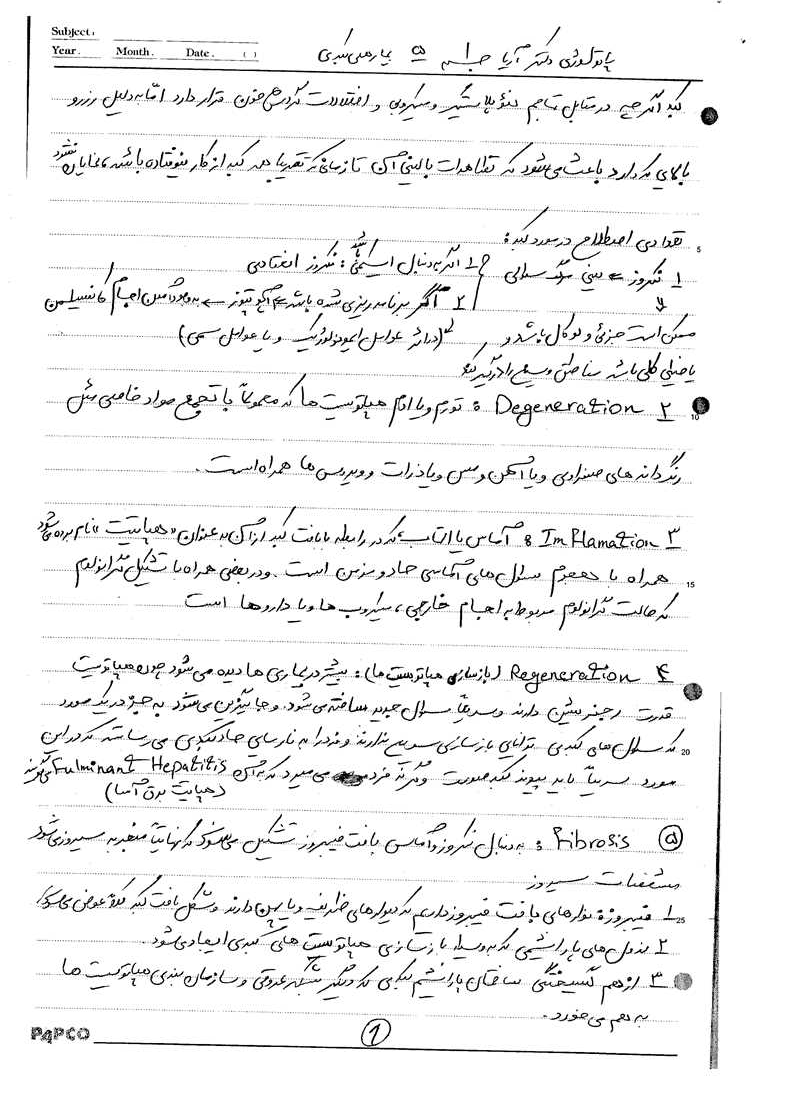 Subject:
Year. Month. Date. ( )
پاتولوژی دکتر آریا جلسه ۵ بیماریهای کبدی
کبد اگر چه در مقابل تهاجم نئوپلاستیک و میکروبی و اختلالات گردش خون قرار دارد اما به دلیل رزرو
بالایی که دارد باعث می‌شود که تظاهرات بالینی آن تا زمانی که تقریبا کبد از کار نیوفتاده باشد، نمایان نشود
5
تعدادی اصطلاح در مورد کبد:
۱ نکروز ← یعنی مرگ سلولی ۱ اگر به دنبال ایسکمی باشد: نکروز انعقادی
۲ اگر برنامه ریزی شده باشد ← آپوپتوز ← به وجود آمدن اجسام کانسیلمن
ممکن است جزئی و لوکال باشد و (در اثر عوامل ایمونولوژیک و یا عوامل سمی)
یا خیلی کلی باشد مناطق وسیع را درگیر کند
۲ Degeneration : تورم و یا ادم هپاتوسیت ها که معمولاً با تجمع مواد خاصی مثل
10
رنگدانه های صفراوی و یا آهن و مس و یا ذرات و ویروس ها همراه است.
۳ Imflamation : آماس یا التهاب که در رابطه با بافت کبد از آن به عنوان «هپاتیت» نام برده می‌شود
همراه با هجوم سلول های آماسی حاد و مزمن است. و در بعضی همراه با تشکیل گرانولوم
15
که حالت گرانولوم مربوط به اجسام خارجی، میکروب ها و یا داروها است
۴ Regeneration (بازسازی هپاتوسیت ها): بیشتر در بیماری ها دیده می شود چون هپاتوسیت
قدرت رجنریشن دارند و سریعاً سلول جدید ساخته می شود. و جایگزین می‌شود به جز در یک مورد
که سلول های کبدی توانایی بازسازی سریع ندارند و فرد را به نارسایی حاد کبدی می رساند که در این
20
مورد سریعاً باید پیوند کبد صورت وگرنه فرد می میرد که به آن Fulminant Hepatitis می‌گویند
(هپاتیت برق آسا)
۵ Fibrosis : به دنبال نکروز و آماس بافت فیبروز تشکیل می‌شود که نهایتاً منجر به سیروز می‌شود
مشخصات سیروز
۱ فیبروز: نوارهای بافت فیبروز داریم که دیواره های ظریف و یا پهن دارند و شکل بافت کبد کلاً عوض می‌شود
25
۲ ندول های پارانشیمی که به وسیله بازسازی هپاتوسیت های کبدی ایجاد می شود.
۳ از هم گسیختگی ساختمان پارانشیم کبدی که دیگر شبکه عروقی و سازمان بندی هپاتوسیت ها
به هم می خورد.
PAPCO
1